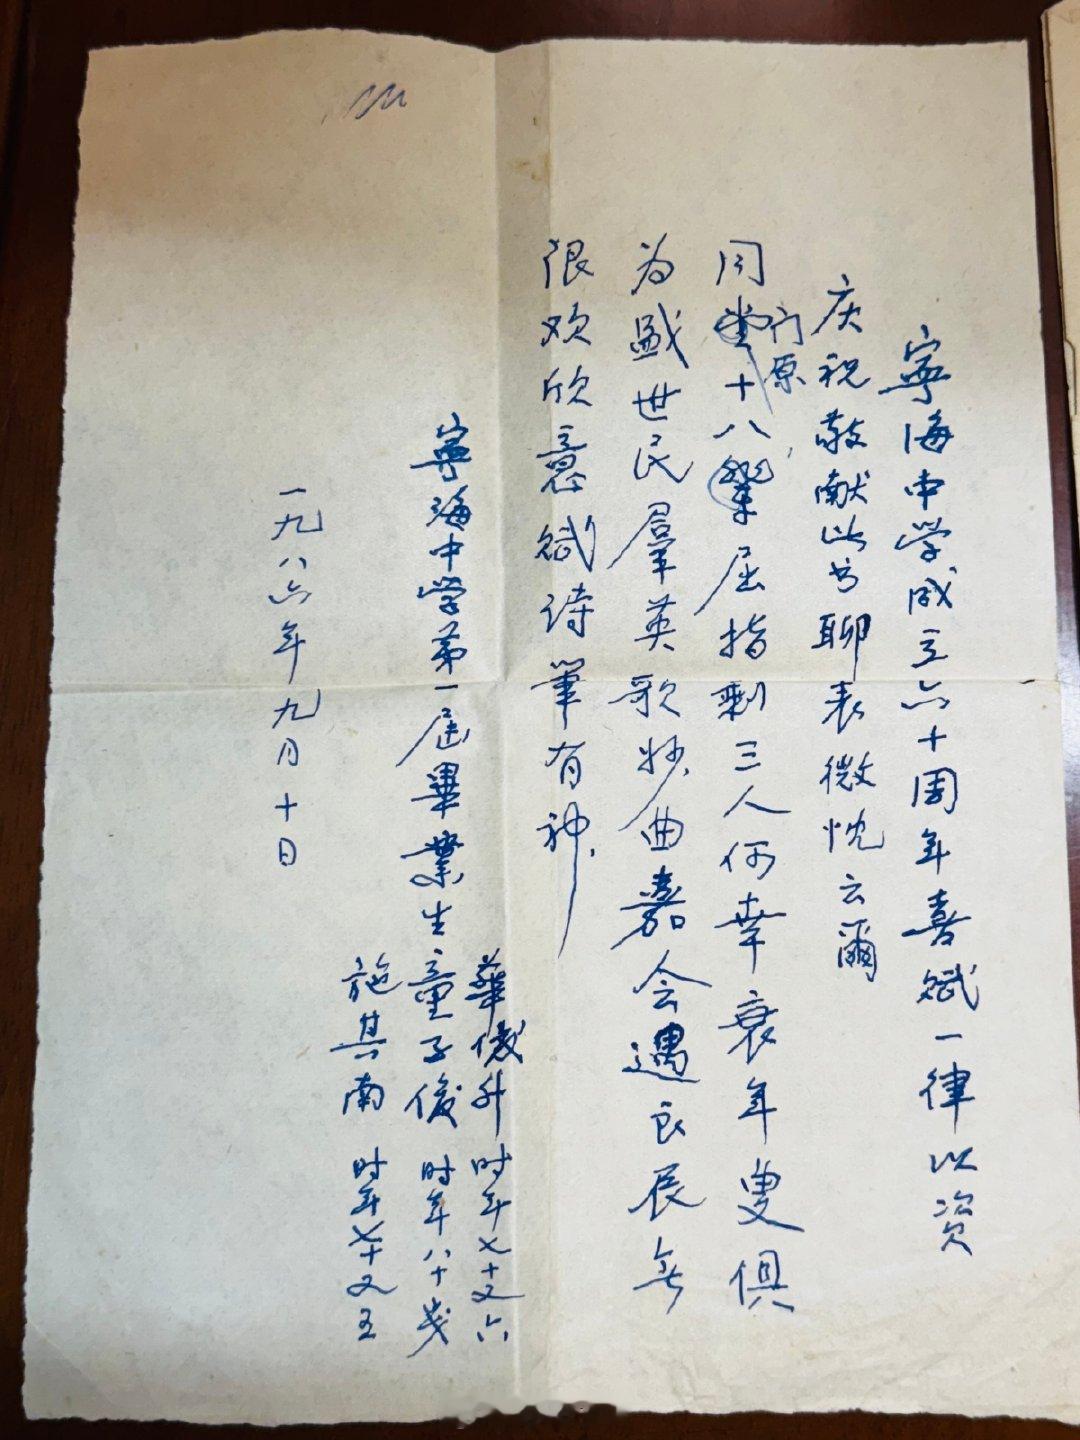 寧海中学成立六十周年喜赋一律以资
庆祝敬献此书聊表微忱云爾
同门原十八,屈指剩三人何幸衰年叟俱
为盛世民羣英歌妙曲嘉会遇良辰无
限欢欣意赋诗筆有神.
華升时年七十又六
寧海中学第一届畢業生童子俊时年八十岁
施其南时年七十又五
一九八六年九月十日